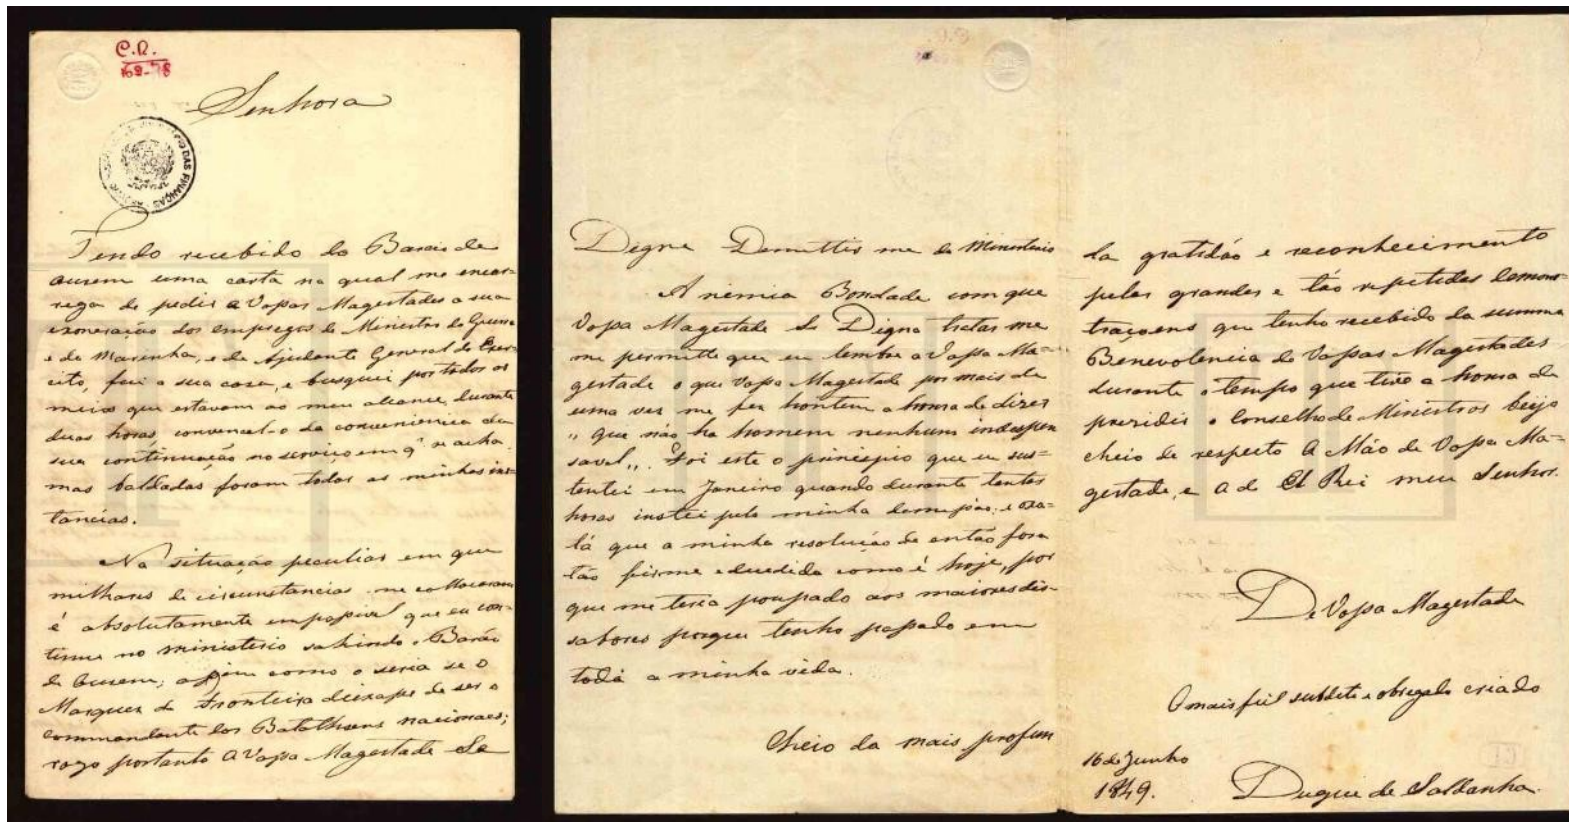 C.R.
162-78
Senhora
DAS FINANÇAS
Tendo recebido do Barão de
Ourem uma carta na qual me encar-
rega de pedir a Vossas Magestades a sua
exoneração dos empregos de Ministro da Guerra
e da Marinha, e de Ajudante General do Exer-
cito, fui a sua casa, e busquei por todos os
meios que estavam ao meu alcance, durante
duas horas, convencel-o da conveniencia da
sua continuação no serviço em q' se acha
mas baldadas foram todas as minhas ins-
tancias.
Na situação peculiar em que
milhares de circunstancias me collocaram
é absolutamente impossivel que eu con-
tinue no ministerio sahindo o Barão
de Ourem; assim como o seria se o
Marquez de Fronteira deixasse de ser o
commandante dos Batalhoens nacionaes;
rogo portanto a Vossa Magestade Se
Digne Demittir me do Ministerio
A nimia Bondade com que
Vossa Magestade Se Digna tratar me
me permitte que eu lembre a Vossa Ma=
gestade o que Vossa Magestade por mais de
uma vez me fez hontem a honra de dizer
"que não ha homem nenhum indespen
savel". Foi este o principio que eu sus=
tentei em Janeiro quando durante tantas
horas instei pela minha demissão: e oxa=
lá que a minha resolução de então fora
tão firme e decidida como é hoje, por
que me teria poupado aos maiores dis-
sabores porque tenho passado em
toda a minha vida.
Cheio da mais profun
da gratidão e reconhecimento
pelas grandes e tão repetidas demons=
traçoens que tenho recebido da summa
Benevolencia de Vossas Magestades
durante o tempo que tive a honra de
prezidir o Conselho de Ministros beijo
cheio de respeito A Mão de Vossa Ma=
gestade, e A de El Rei meu Senhor.
De Vossa Magestade
O mais fiel subdito e obrigado criado
16 de Junho
1849.
Duque de Saldanha